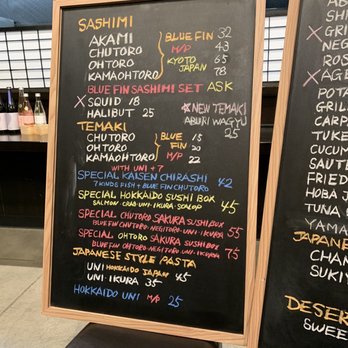 SASHIMI
AKAMI 32
CHUTORO BLUE FIN 43
OHTORO M/P KYOTO 65
KAMAOHTORO JAPAN 78
BLUE FIN SASHIMI SET ASK
X SQUID 18
HALIBUT 25
X NEW TEMAKI
ABURI WAGYU
25
TEMAKI
CHUTORO BLUE 18
OHTORO FIN 20
KAMAOHTORO M/P 22
WITH UNI + 7
SPECIAL KAISEN CHIRASHI 42
7 KINDS FISH + BLUE FIN CHUTORO
SPECIAL HOKKAIDO SUSHI BOX 45
SALMON CRAB UNI IKURA
SPECIAL CHUTORO SAKURA SUSHI BOX 55
BLUE FIN CHUTORO NEGITORO UNI IKURA
SPECIAL OHTORO SAKURA SUSHI BOX 75
BLUE FIN OHTORO NEGITORO UNI IKURA
JAPANESE STYLE PASTA
UNI HOKKAIDO JAPAN 45
UNI · IKURA 35
HOKKAIDO UNI M/P 25
GRI
NEG
ROS
X AGE
POTA
GRILL
CARP
TUKE
CUCU
SAUTE
FRIED
HOBA J
TUNA
YAMA
JAPANE
CHAN
SUKIY
DESER
SWEE